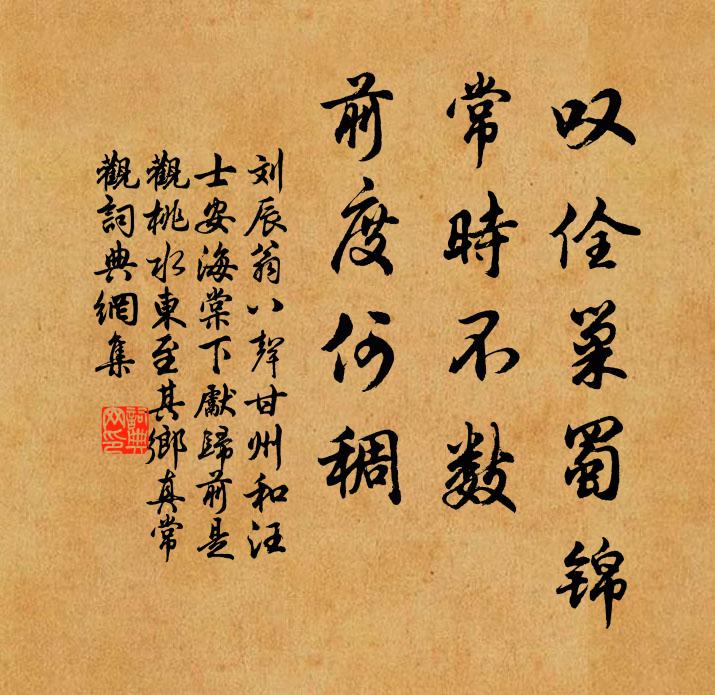 叹佺巢蜀锦
常時不数
前度何稠
刘辰翁八聲甘州和汪
士安海棠下獻歸前是
觀桃水東至其鄉真常
觀詞典網集
詞典
网印